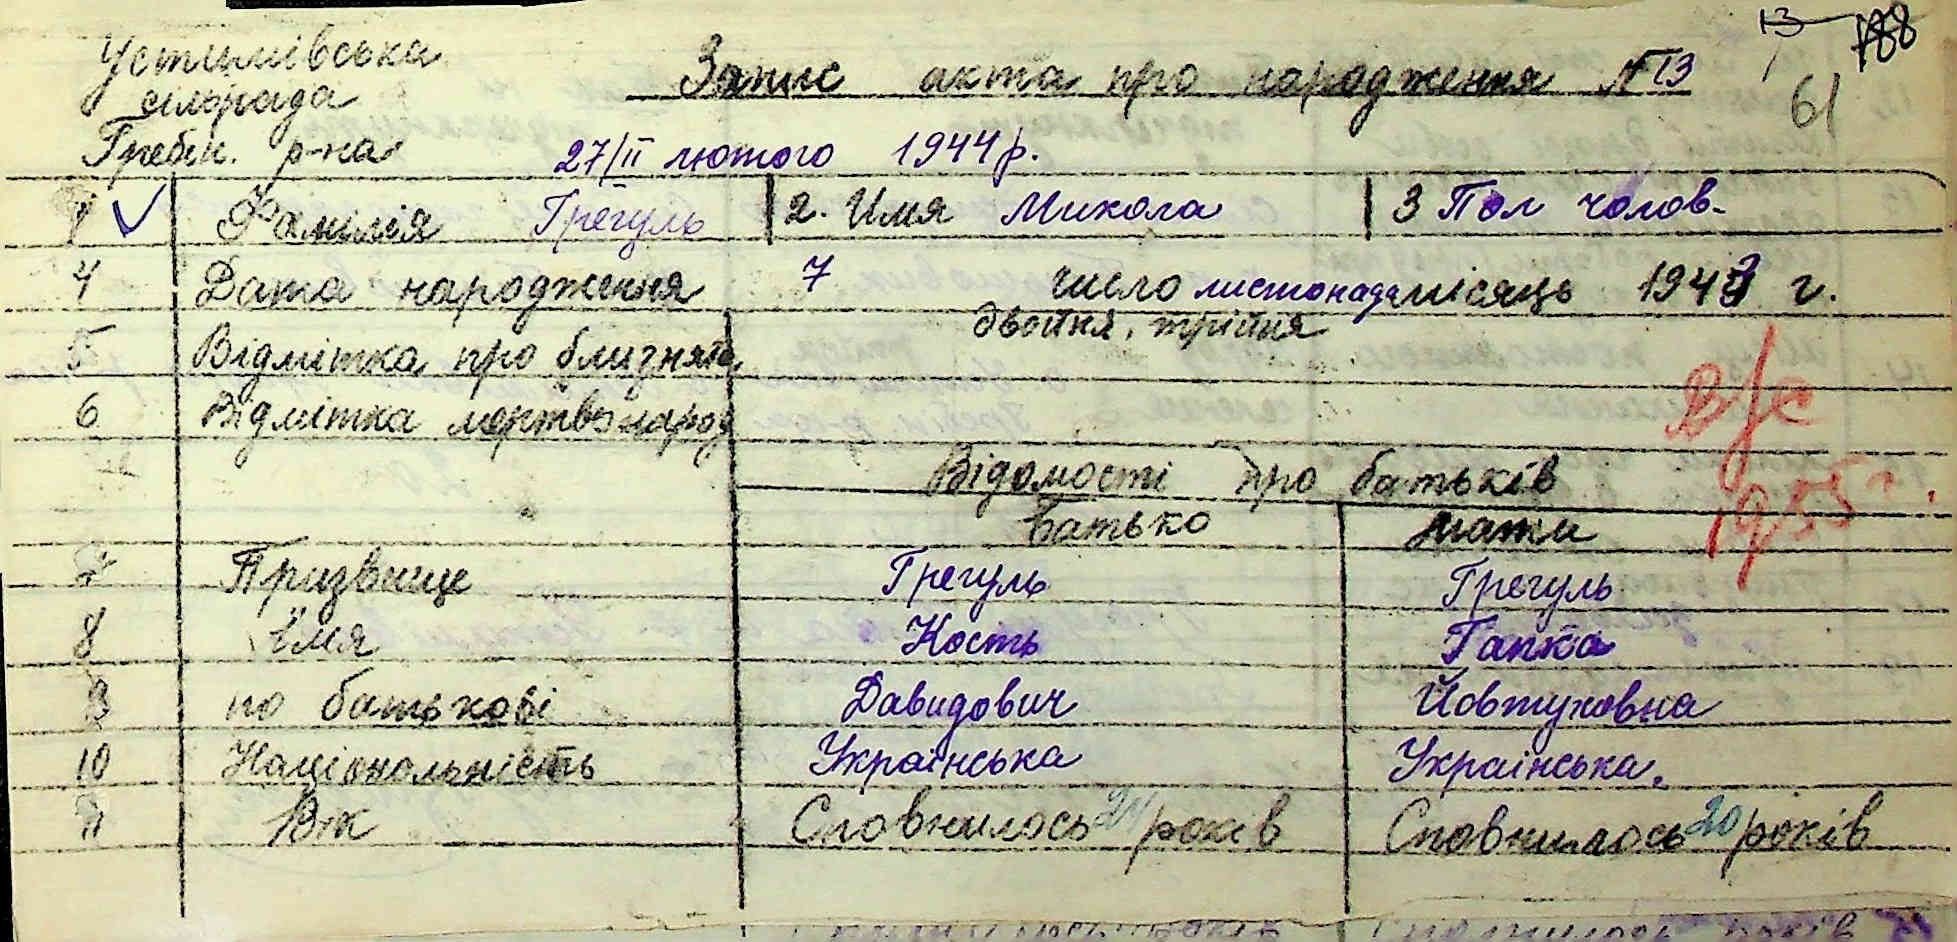 13 188
Устимівська
сільрада
Гребін. р-на
Запис акта про народження №13
61
27/II лютого 1944 р.
1 Фамілія Грегуль 2. Имя Микола 3 Пол чолов.
4 Дата народження 7 число листопада місяць 1943 г.
двойня, трійня
5 Відмітка про близнят
6 Відмітка мертвонарод
В/с
1955 г.
Відомості про батьків
батько мати
7 Призвище Грегуль Грегуль
8 імя Кость Гапка
9 по батькові Давидович Йовтуховна
10 Національність Українська Українська.
11 Вік Сповнилось 21 років Сповнилось 20 років